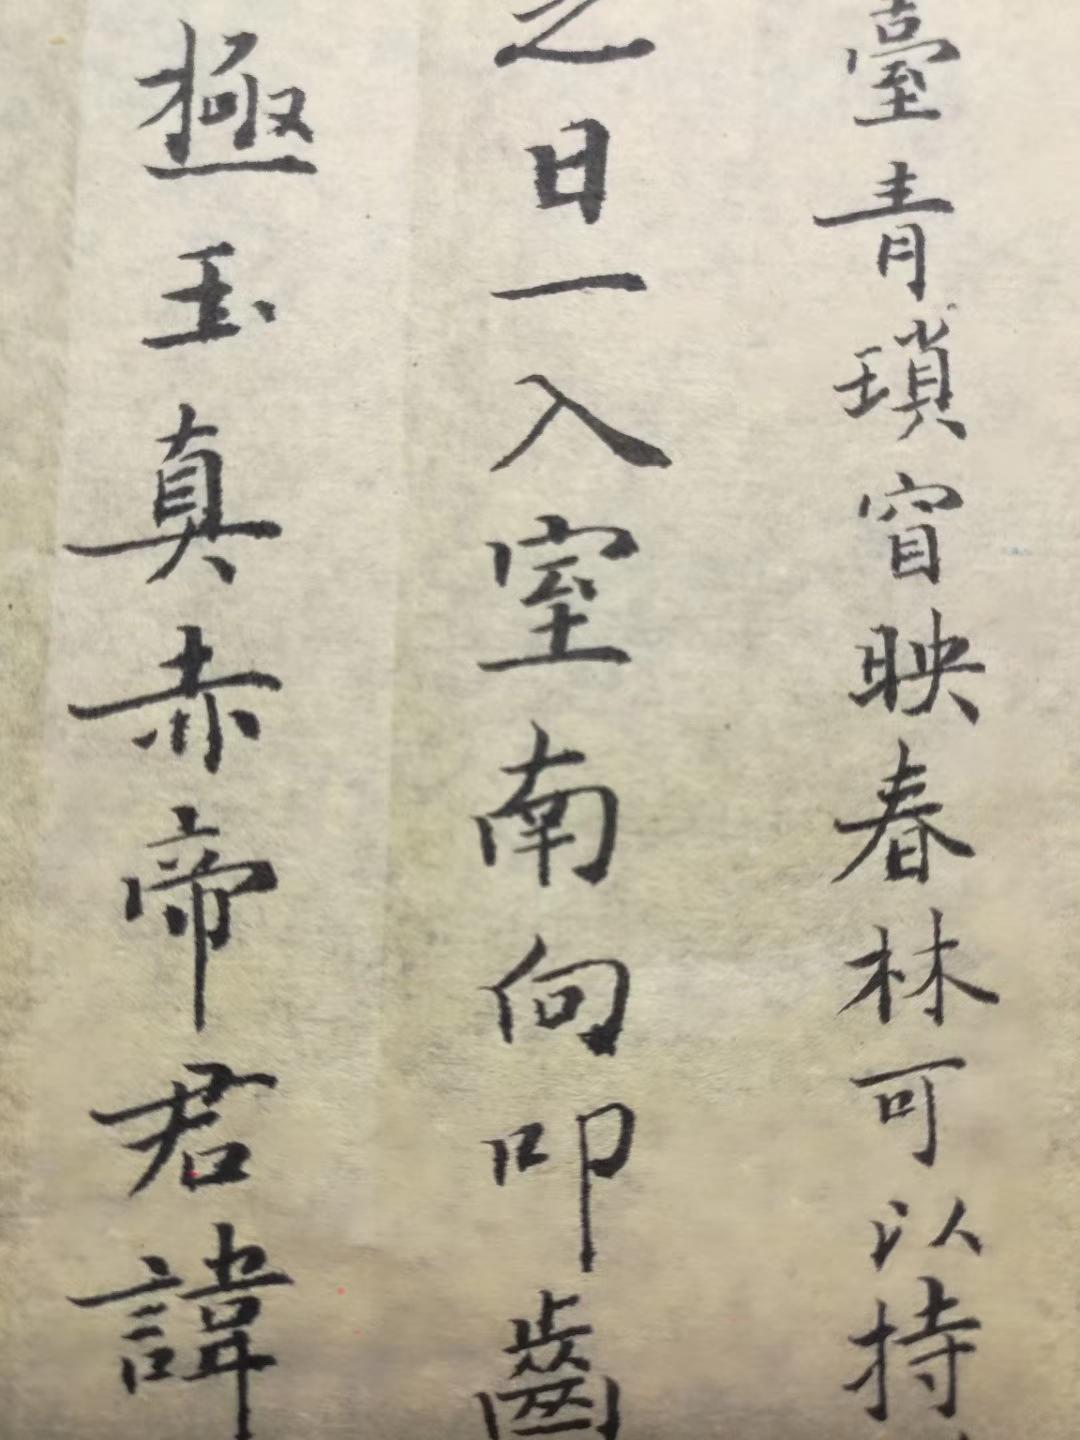 臺青瑣窗映春林可以持
之日一入室南向叩齒
極玉真赤帝君諱